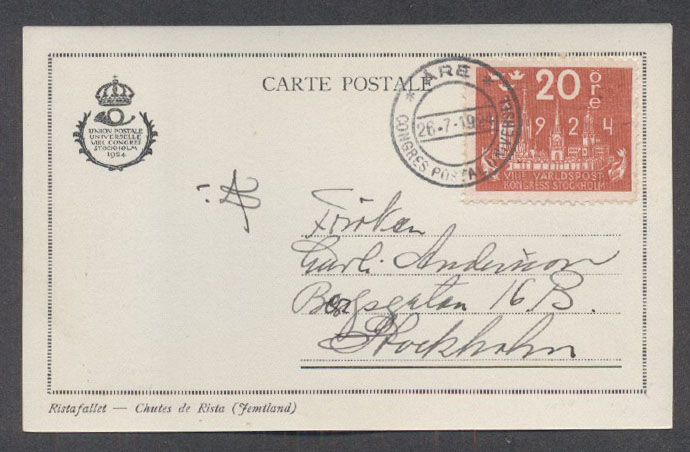 CARTE POSTALE
UNION POSTALE
UNIVERSELLE
VIII. CONGRÈS
STOCKHOLM
1924
* ÅRE *
26.-7.-1924
CONGRES POSTAL UNIVERSEL
20 öre
1924
VIII VÄRLDSPOST
KONGRESS STOCKHOLM
Fröken
Andersson
Bergsgatan 16 B.
Stockholm
Ristafallet — Chutes de Rista (Jemtland)